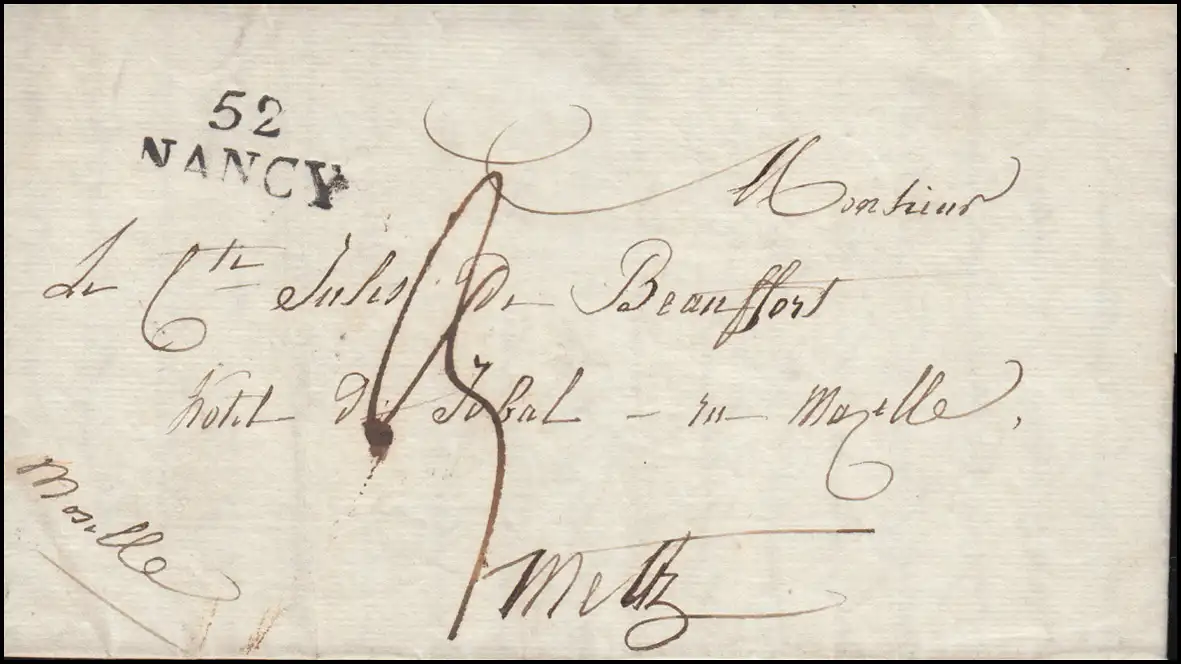 52
NANCY
Monsieur
Le Cte Jules De Beauffort
hotel De Jobal - rue Mazelle,
Moselle
Metz